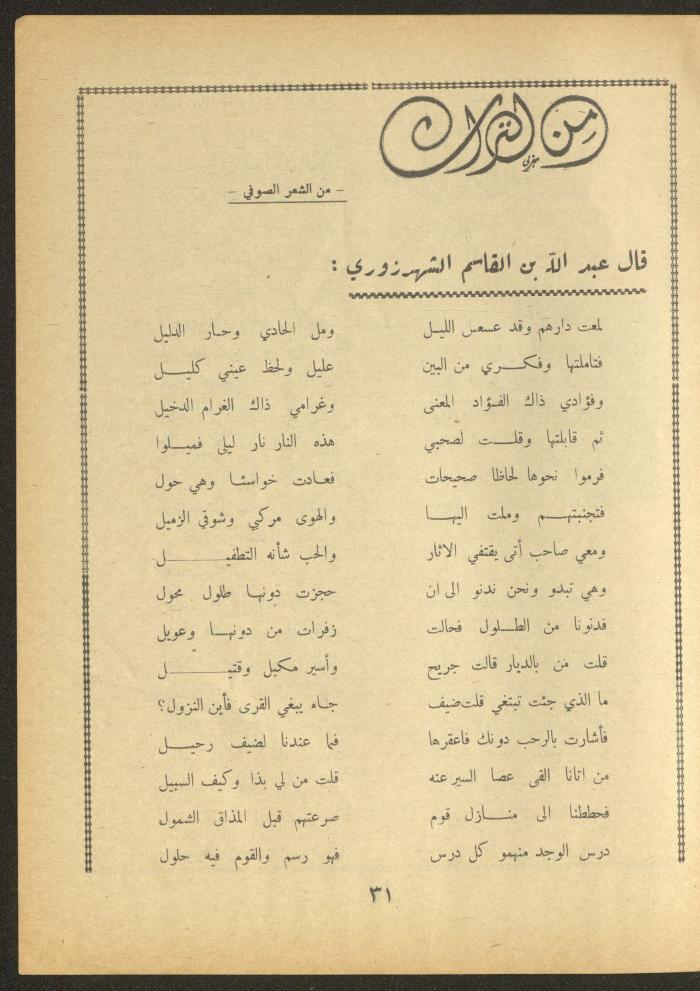 من التراث
- من الشعر الصوفي -
قال عبد الله بن القاسم الشهرزوري :
لمعت دارهم وقد عسعس الليل ومل الحادي وحار الدليل
فتاملتها وفكري من البين عليل ولحظ عيني كليل
وفؤادي ذاك الفؤاد المعنى وغرامي ذاك الغرام الدخيل
ثم قابلتها وقلت لصحبي هذه النار نار ليلى فميلوا
فرموا نحوها لحاظا صحيحات فعادت خواسئا وهي حول
فتجنبتهم وملت اليها والهوى مركبي وشوقي الزميل
ومعي صاحب أتى يقتفي الاثار والحب شأنه التطفيل
وهي تبدو ونحن ندنو الى ان حجزت دونها طلول محول
فدنونا من الطلول فحالت زفرات من دونها وعويل
قلت من بالديار قالت جريح وأسير مكبل وقتيل
ما الذي جئت تبتغي قلت ضيف جاء يبغي القرى فأين النزول؟
فأشارت بالرحب دونك فاعقرها فما عندنا لضيف رحيل
من اتانا القى عصا السير عنه قلت من لي بذا وكيف السبيل
فحططنا الى منازل قوم صرعتهم قبل المذاق الشمول
درس الوجد منهمو كل درس فهو رسم والقوم فيه حلول
٣١